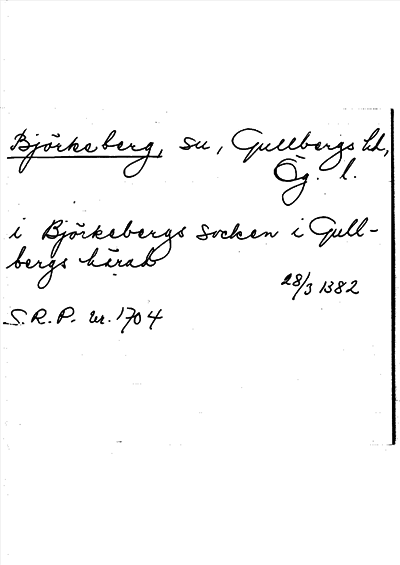 Björkeberg, sn, Gullbergs hd,
Ög. l.
i Björkebergs socken i Gull-
bergs härad
28/3 1382
S.R.P. nr. 1704